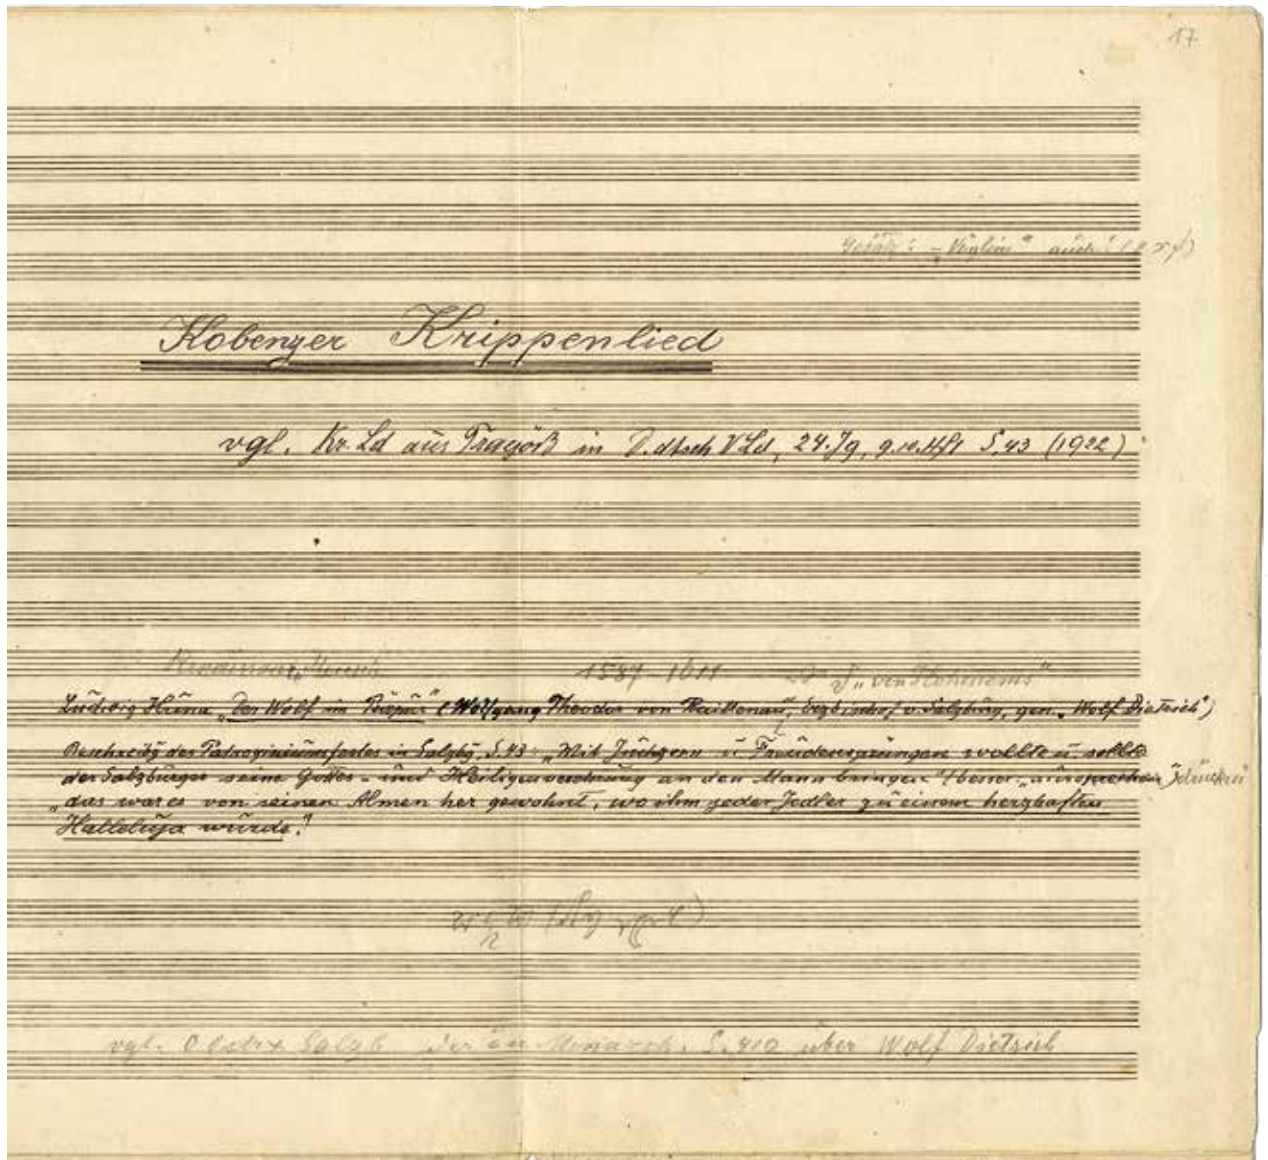 17
"Vöglein" auch!
Kobenzer Krippenlied
vgl. Kr. Ld aus Tragöß in D. dtsch VLd, 24. Jg, 9. 10. Hft S. 43 (1922)
Renaissance Mensch 1587 – 1611 "von Hohenems"
Ludwig Huna "Der Wolf im Purpur" (Wolfgang Theodor von Raittenau, Erzbischof v. Salzburg, gen. "Wolf Dietrich")
Beschreibg des Patroziniumfestes in Salzbg, S. 43: "Mit Juchzern u. Freudensprüngen wollte u. sollte
der Salzburger seine Gottes- und Heiligenverehrung an den Mann bringen" (besser: "drücken"
"das war es von seinen Almen her gewohnt, wo ihm jeder Jodler zu einem herzhaften
Halleluja wurde."
vgl. Salzb S. 410 über Wolf Dietrich